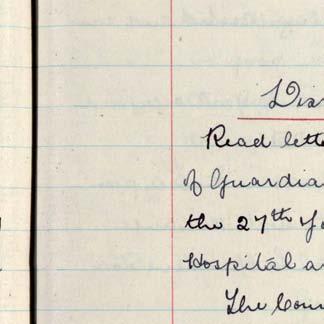 Read lette
of Guardia
the 27th Ja
Hospital a
The Coun